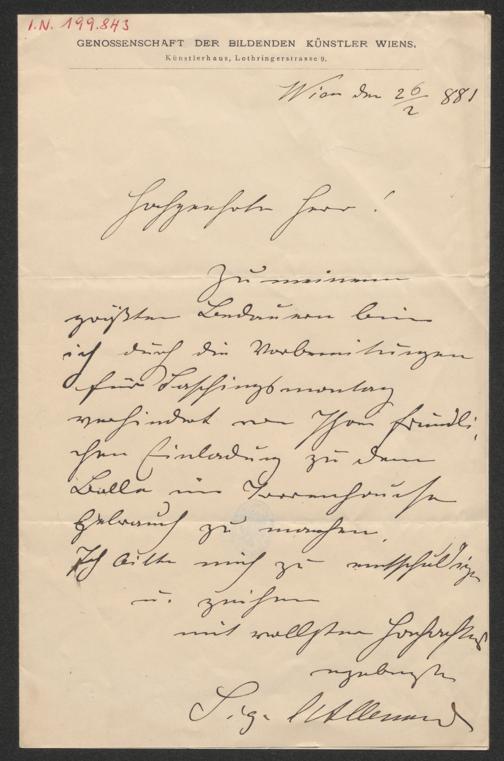 I.N. 199.843
GENOSSENSCHAFT DER BILDENDEN KÜNSTLER WIENS.
Künstlerhaus, Lothringerstrasse 9.
Wien den 26/2 881
Hochgeehrter Herr!
Zu meinem
größten Bedauern bin
ich durch die Vorbereitungen
für Faschingsmontag
verhindert von Ihrer freundli-
chen Einladung zu dem
Balle im Irrenhause
Gebrauch zu machen.
Ich bitte mich zu entschuldigen
u. zeichne
mit vollster Hochachtung
ergebenster
Sig. L'Allemand